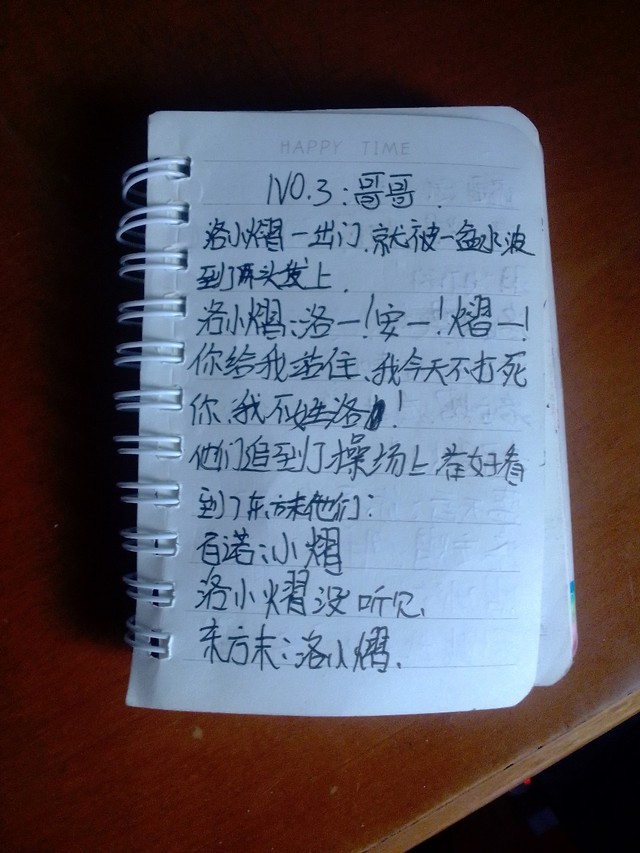 HAPPY TIME
NO.3:哥哥.
洛小熠一出门,就被一盆水波
到了头发上.
洛小熠:洛一!安一!熠一!
你给我站住、我今天不打死
你、我不姓洛!
他们追到了操场上,荅好看
到了东方末他们:
百诺:小熠
洛小熠没听见、
东方末:洛小熠.